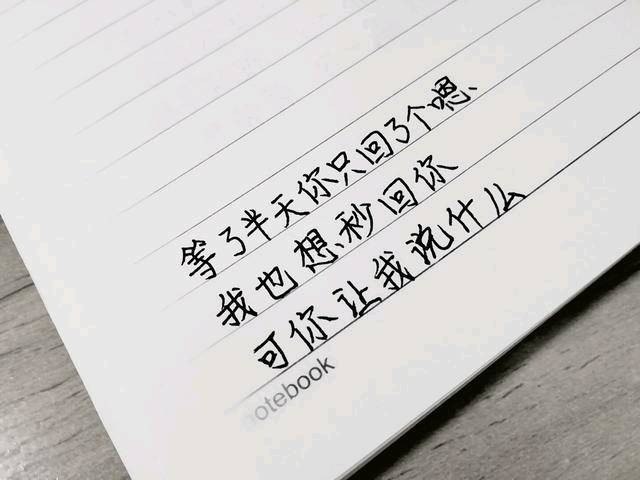 等了半天你只回了个嗯、
我也想秒回你
可你让我说什么
notebook